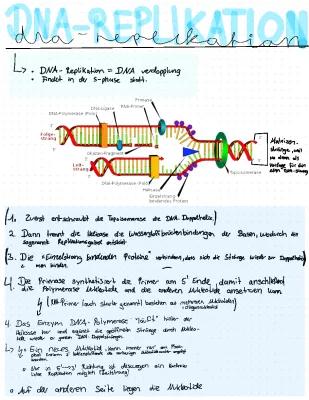 DNA-REPLIKATION
dna-replikation
DNA-Replikation = DNA verdopplung
findet in der S-phase statt.
Primase
DNA-Ligase
RNA-Primer
DNA-Polymerase (Polα)
Folge-
strang
Okazaki-Fragment
Leit-
strang
DNA-Polymerase (Polδ)
Helikase
Einzelstrang
bindendes Protein
Topoisomerase
Matrizen-
stränge, weil
sie dann als
Vorlage für den
1. Zuerst entschraubt die Topoisomerase die DNA Doppelhelix
2. Dann trennt die Helikase die Wasserstoffbrückenbindungen der Basen, wodurch ein
sogenannte Replikationsgabel entsteht
3. Die "Einzelstrang bindenden Proteine" verhindern, dass sich die Stränge wieder zur Doppelhelix
binden
4. Die Primase synthetisiert die Primer am 5' Ende, damit anschließend
die Polymerase Nukleotide und die anderen Nukleotide ansetzen kann
RNA-Primer (auch Starter genannt) bestehen aus mehreren Nukleotiden
4. Das Enzym DNA-Polymerase "läuft" hinter der
Helikase her und ergänzt die geöffneten Stränge durch Nukleo-
tide wieder zu ganzen DNA Doppelsträngen.
Ein neues Nukleotid kann immer nur am Phos-
Nur in 5'→3' Richtung ist deswegen ein kontinuier-
liche Replikation möglich (Leitstrang)
Auf der anderen Seite liegen die Nukleotide